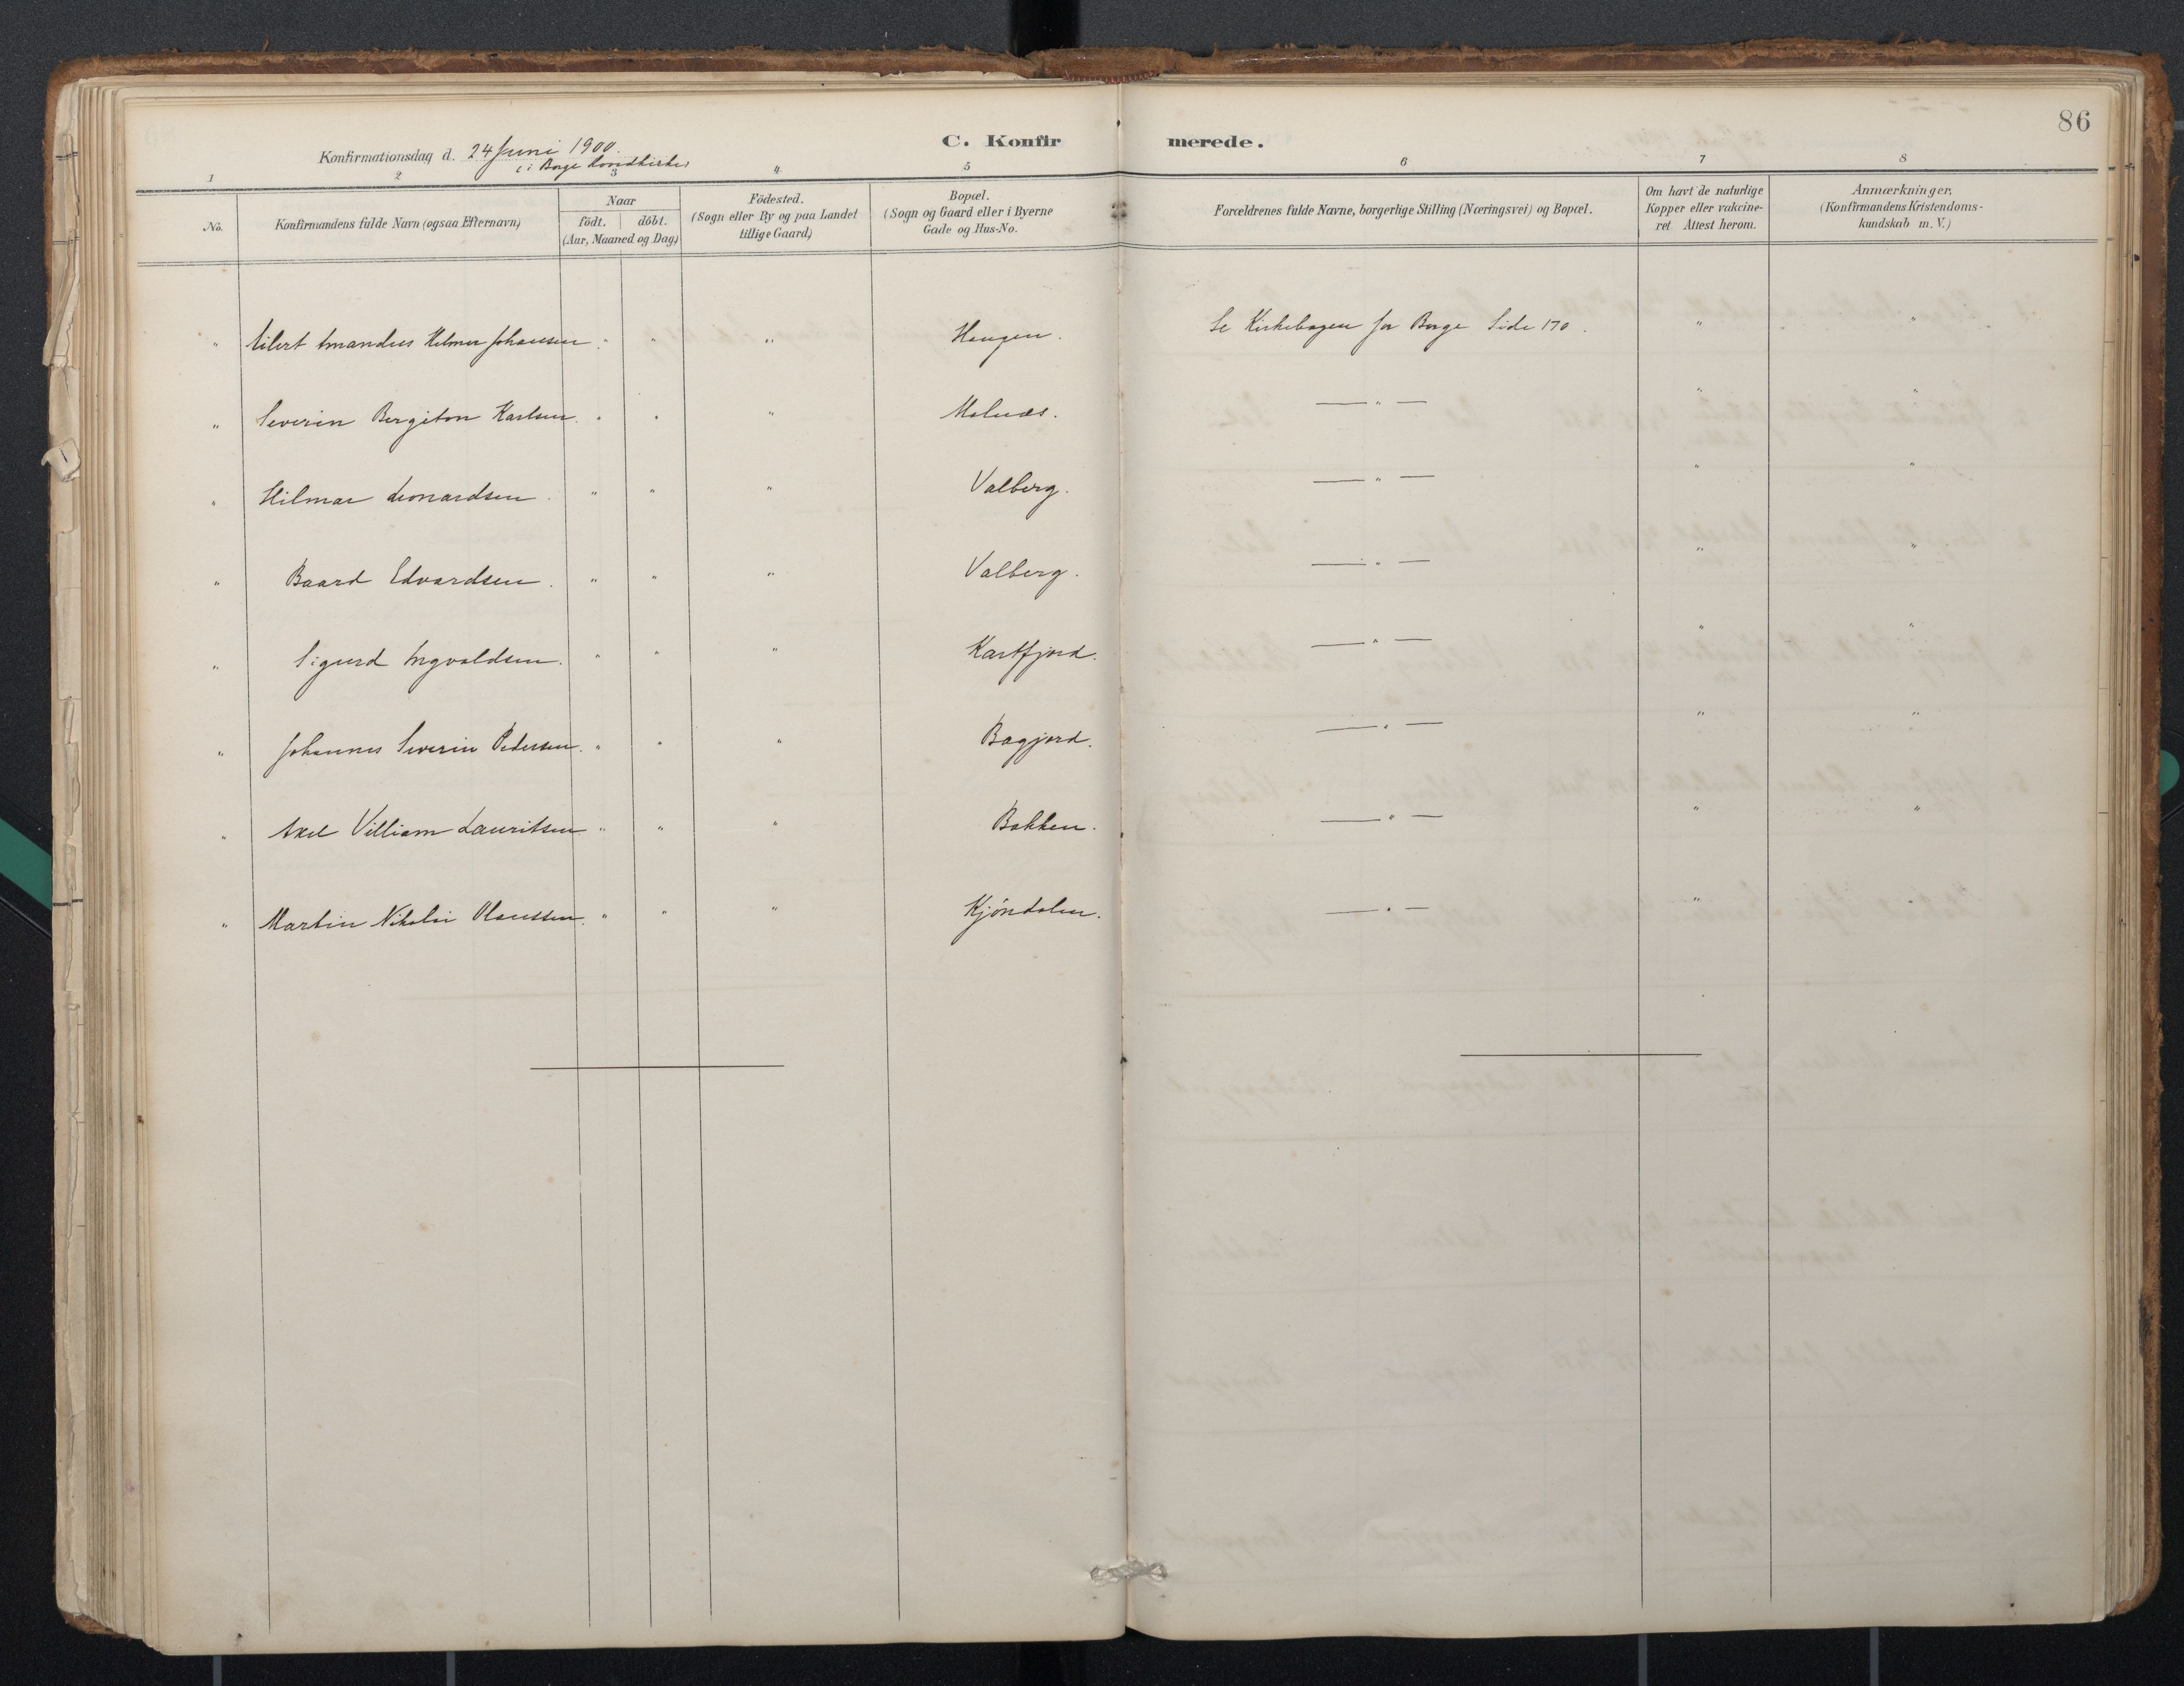 86
C. Konfirmerede.
Konfirmationsdag d. 24 Juni 1900.
i Borge Hovedkirke
1 2 3 4 5 6 7 8
No.
Konfirmandens fulde Navn (ogsaa Efternavn)
Naar
födt. döbt.
(Aar, Maaned og Dag)
Födested.
(Sogn eller By og paa Landet
tillige Gaard)
Bopæl.
(Sogn og Gaard eller i Byerne
Gade og Hus-No.
Forældrenes fulde Navne, borgerlige Stilling (Næringsvei) og Bopæl.
Om havt de naturlige
Kopper eller vakcine-
ret Attest herom.
Anmærkninger,
(Konfirmandens Kristendoms-
kundskab m. V.)
" Eilert Amandus Hilmer Johansen. " " " Haugen. Se Kirkebogen for Borge Side 170. " "
" Severin Bergiton Karlsen. " " " Molnæs. — " — " "
" Hilmar Leonardsen. " " " Valberg. — " — " "
" Baard Edvardsen. " " " Valberg. — " — " "
" Sigurd Ingvaldsen. " " " Kartfjord. — " — " "
" Johannes Severin Pedersen. " " " Bagjord. — " — " "
" Axel Villiam Lauritsen " " " Bakken. — " — " "
" Martin Nikolai Olaussen. " " " Kjöndalen. — " — " "